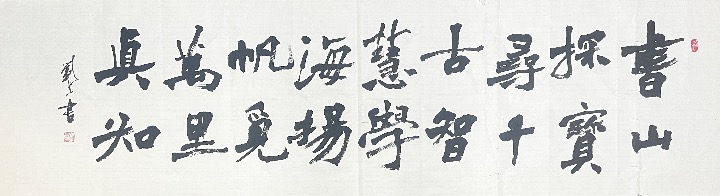 書山
探寶
尋千
古智
慧學
海揚
帆覓
萬里
真知
書